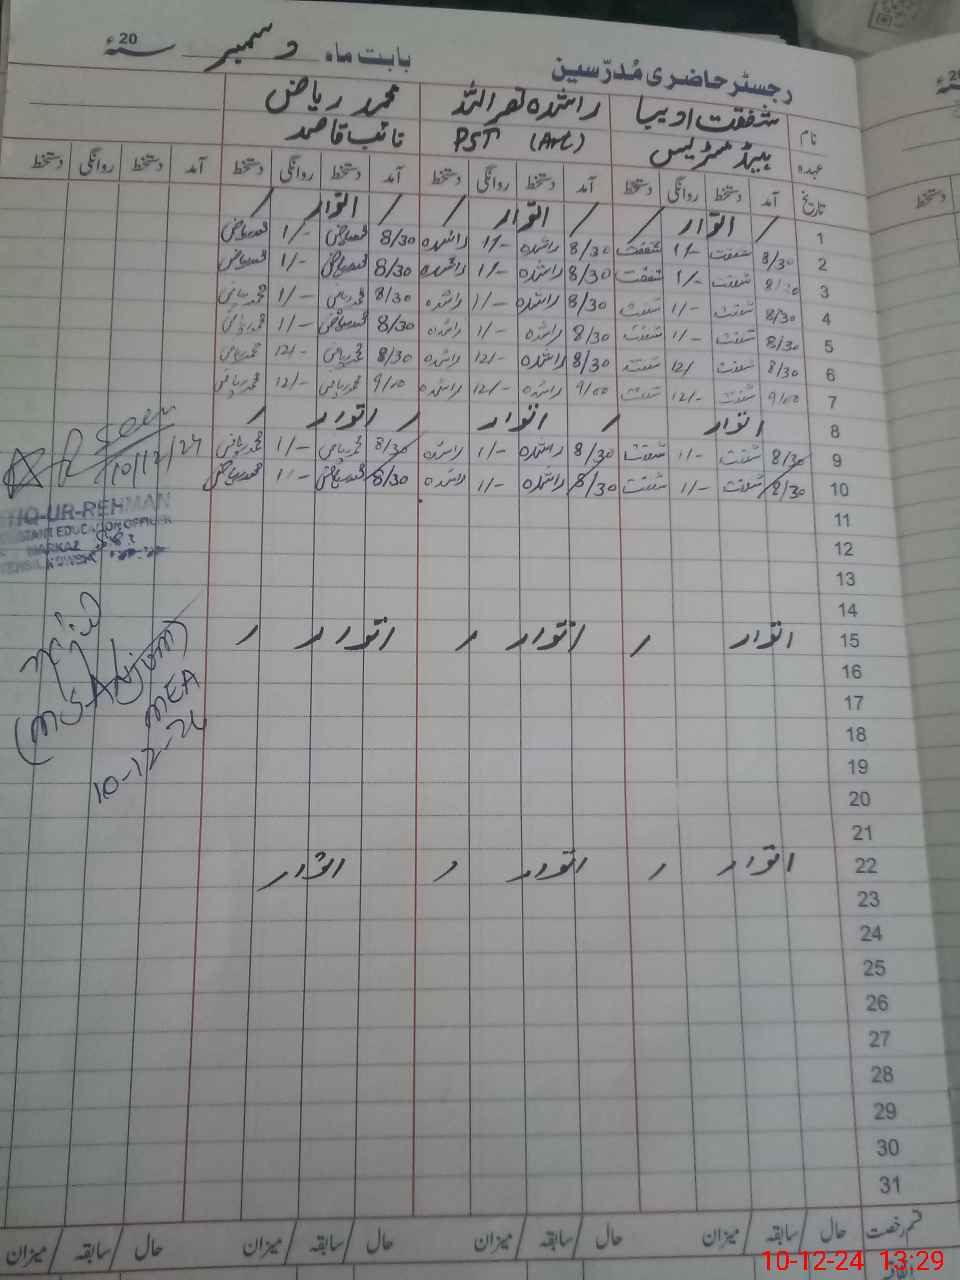 رجسٹر حاضری مُدرّسین بابت ماہ دسمبر سنہ 20ء
نام شفقت ادیبا راشدہ نصراللہ محمد ریاض
عہدہ ہیڈ مسٹریس PST (Arl) نائب قاصد
تاریخ آمد دستخط روانگی دستخط آمد دستخط روانگی دستخط آمد دستخط روانگی دستخط آمد دستخط روانگی دستخط
1 اتوار اتوار اتوار
2 8/30 شفقت 1/- شفقت 8/30 راشدہ 1/- راشدہ 8/30 محمد ریاض 1/- محمد ریاض
3 8/30 شفقت 1/- شفقت 8/30 راشدہ 1/- راشدہ 8/30 محمد ریاض 1/- محمد ریاض
4 8/30 شفقت 1/- شفقت 8/30 راشدہ 1/- راشدہ 8/30 محمد ریاض 1/- محمد ریاض
5 8/30 شفقت 1/- شفقت 8/30 راشدہ 1/- راشدہ 8/30 محمد ریاض 1/- محمد ریاض
6 8/30 شفقت 12/ شفقت 8/30 راشدہ 12/- راشدہ 8/30 محمد ریاض 12/- محمد ریاض
7 9/00 شفقت 12/- شفقت 9/00 راشدہ 12/- راشدہ 9/00 محمد ریاض 12/- محمد ریاض
8 اتوار اتوار اتوار
9 8/30 شفقت 1/- شفقت 8/30 راشدہ 1/- راشدہ 8/30 محمد ریاض 1/- محمد ریاض
10 8/30 شفقت 1/- شفقت 8/30 راشدہ 1/- راشدہ 8/30 محمد ریاض 1/- محمد ریاض
Seen
10/12/24
TIQ-UR-REHMAN
EDUCATION OFFICER
MARKAZ
11
12
13
14
15 اتوار اتوار اتوار
(M S Anjum)
MEA
10-12-24
16
17
18
19
20
21
22 اتوار اتوار اتوار
23
24
25
26
27
28
29
30
31
قسم رخصت حال / سابقہ / میزان حال / سابقہ / میزان حال / سابقہ / میزان حال / سابقہ / میزان
10-12-24 13:29